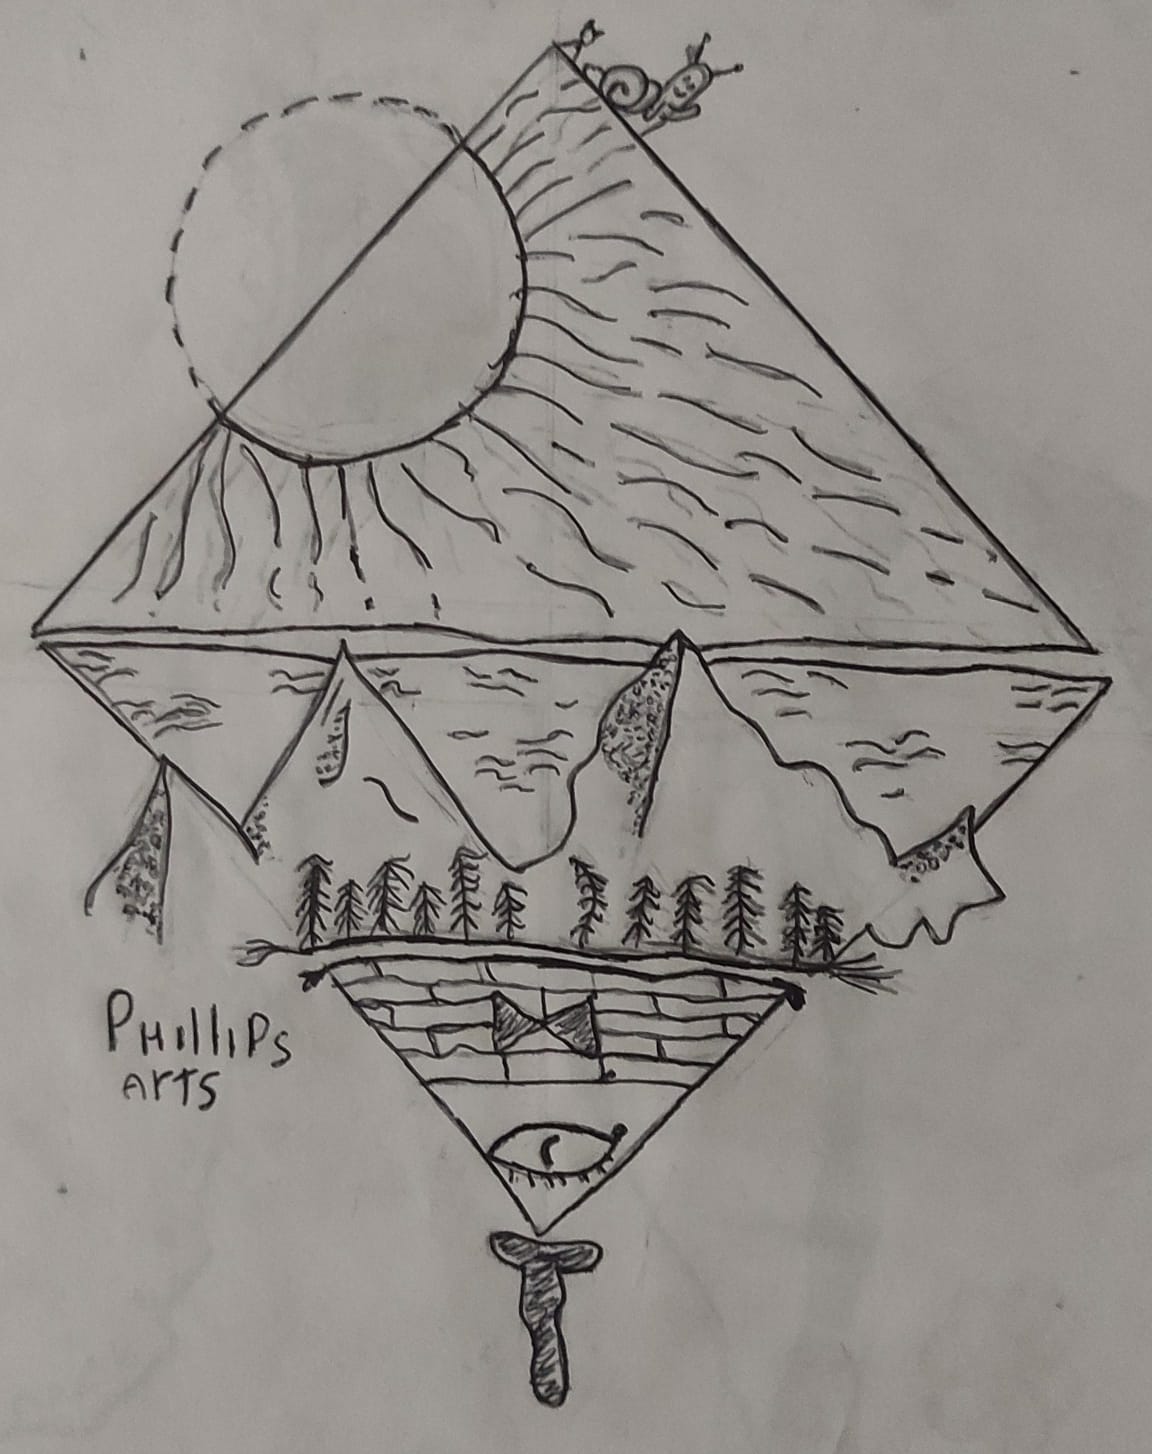 PHillips
Arts